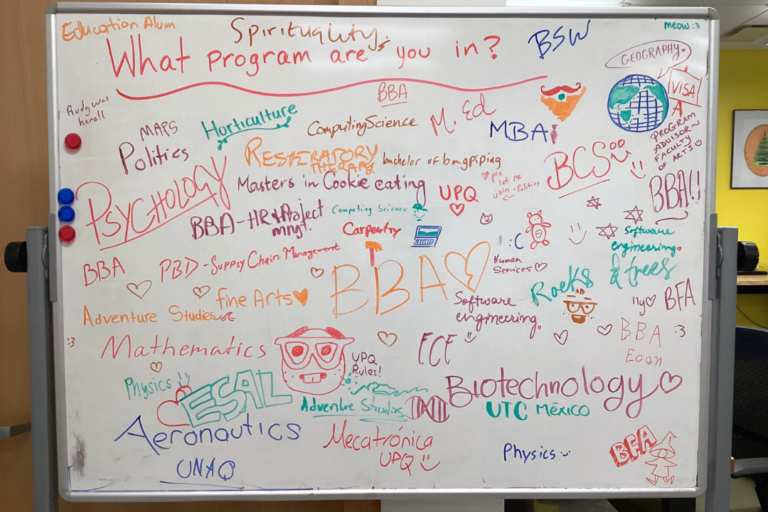 Education Alum
Spirituality
meow :3
What program are you in?
BSW
GEOGRAPHY
BBA
VISA
MAPS
Horticulture
Computing Science
M. Ed
MBA
PROGRAM
ADVISOR
FACULTY
OF ARTS
Politics
RESPIRATORY
THERAPY
bachelor of bagpiping
BCS
PSYCHOLOGY
Masters in Cookie eating
UPQ
pls
let me
join - Politics
BBA!!
BBA - HR & Project
mngt.
Computing Science
Carpentry
:C
Software
engineering
BBA
PBD - Supply Chain Management
BBA
Human
Services
Rocks & trees
fine Arts
Software
engineering
BFA
Adventure Studies
:3
BBA
Econ
:3
Mathematics
UPQ
Rules!
ECE
Physics
ESAL
Adventure Studies
Biotechnology
UTC México
Aeronautics
UNAQ
Mecatrónica
UPQ
Physics
BFA